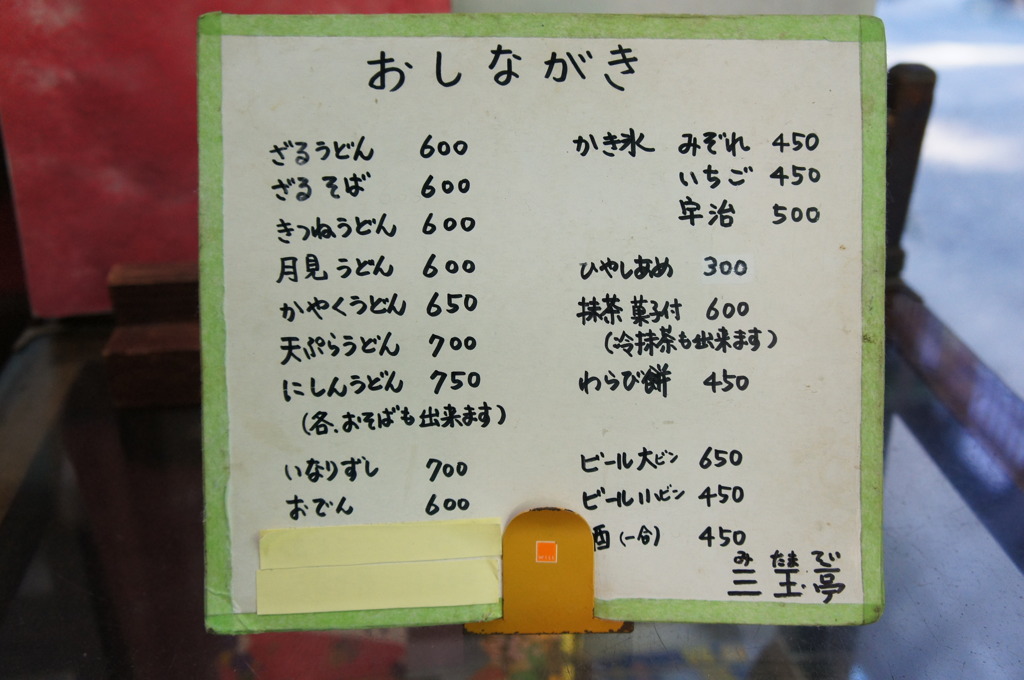 おしながき
ざるうどん 600
ざるそば 600
きつねうどん 600
月見うどん 600
かやくうどん 650
天ぷらうどん 700
にしんうどん 750
（各.おそばも出来ます）
いなりずし 700
おでん 600
かき氷 みぞれ 450
いちご 450
宇治 500
ひやしあめ 300
抹茶菓子付 600
（冷抹茶も出来ます）
わらび餅 450
ビール大ビン 650
ビール小ビン 450
酒（一合） 450
み たま で
三玉亭